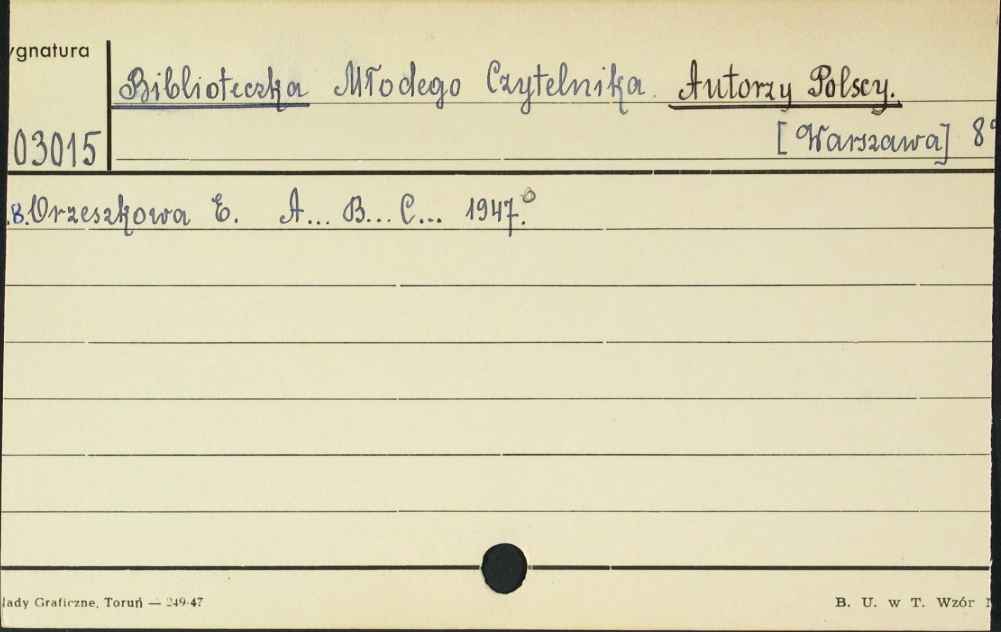 ygnatura
Biblioteczka Młodego Czytelnika. Autorzy Polscy.
03015 [Warszawa] 8°
.8. Orzeszkowa E. A... B... C... 1947.
łady Graficzne, Toruń — 249-47
B. U. w T. Wzór